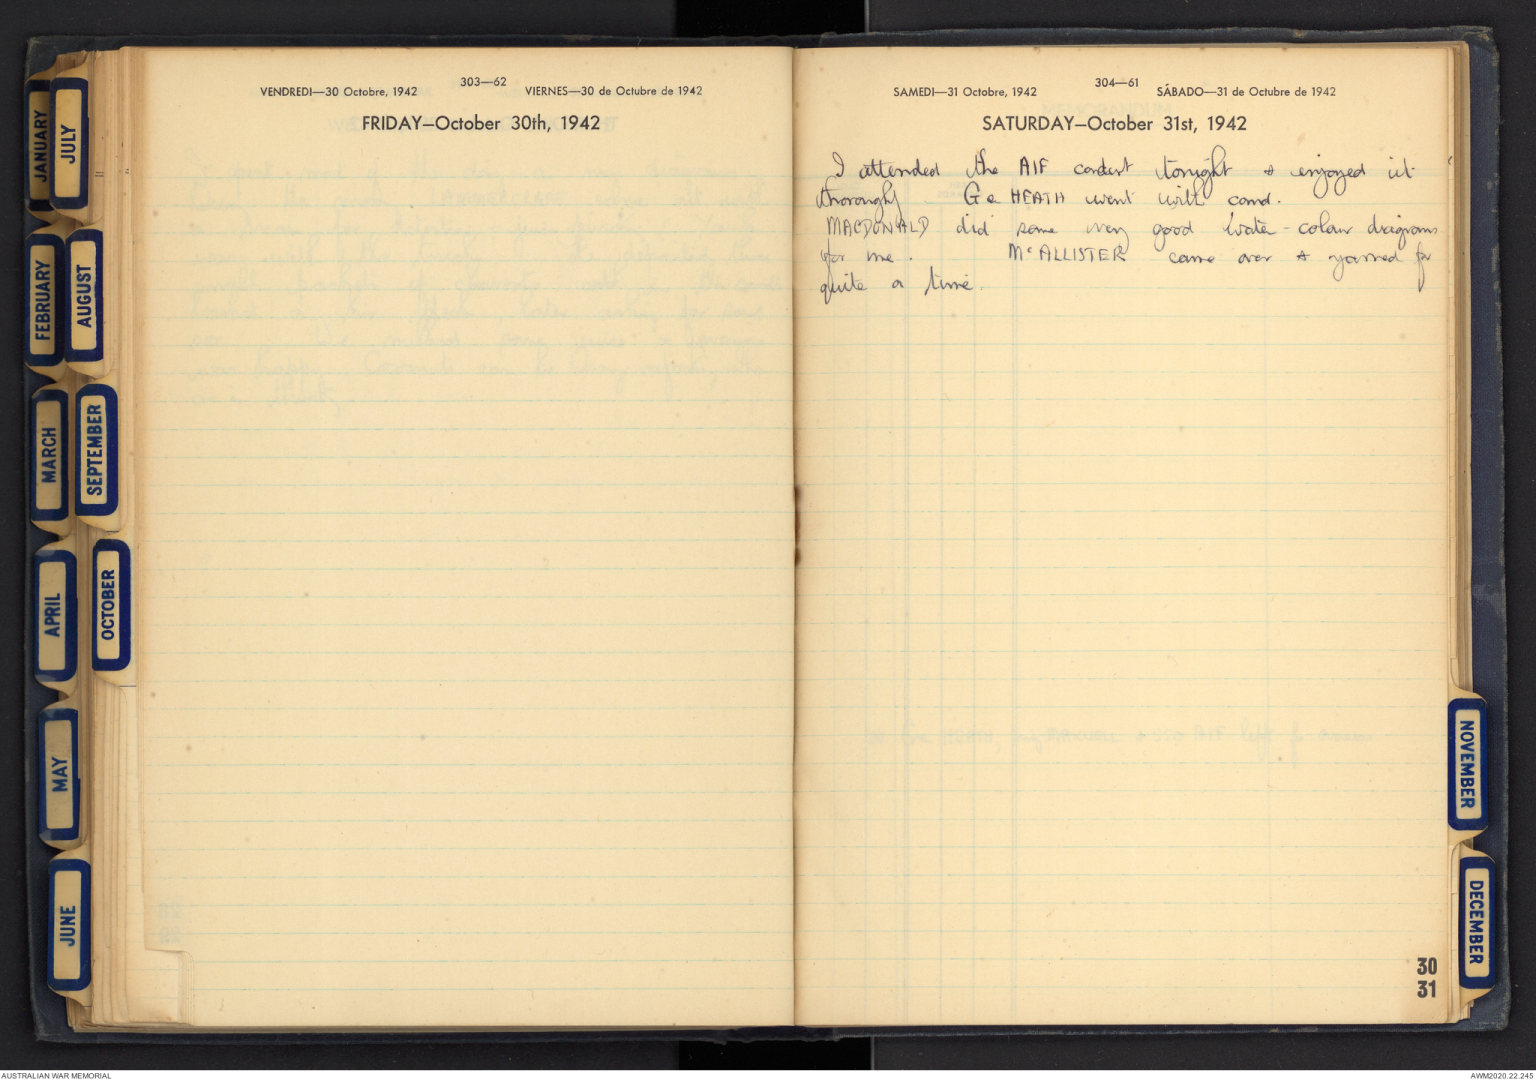 303—62
VENDREDI—30 Octobre, 1942 VIERNES—30 de Octubre de 1942
FRIDAY—October 30th, 1942
304—61
SAMEDI—31 Octobre, 1942 SÁBADO—31 de Octubre de 1942
SATURDAY—October 31st, 1942
I attended the AIF concert tonight & enjoyed it
thoroughly. HEATH went with cond.
MACDONALD did some very good water-colour diagrams
for me. McALLISTER came over & yarned for
quite a time.
30
31
JANUARY
JULY
FEBRUARY
AUGUST
MARCH
SEPTEMBER
APRIL
OCTOBER
MAY
JUNE
NOVEMBER
DECEMBER
AUSTRALIAN WAR MEMORIAL
AWM2020.22.245